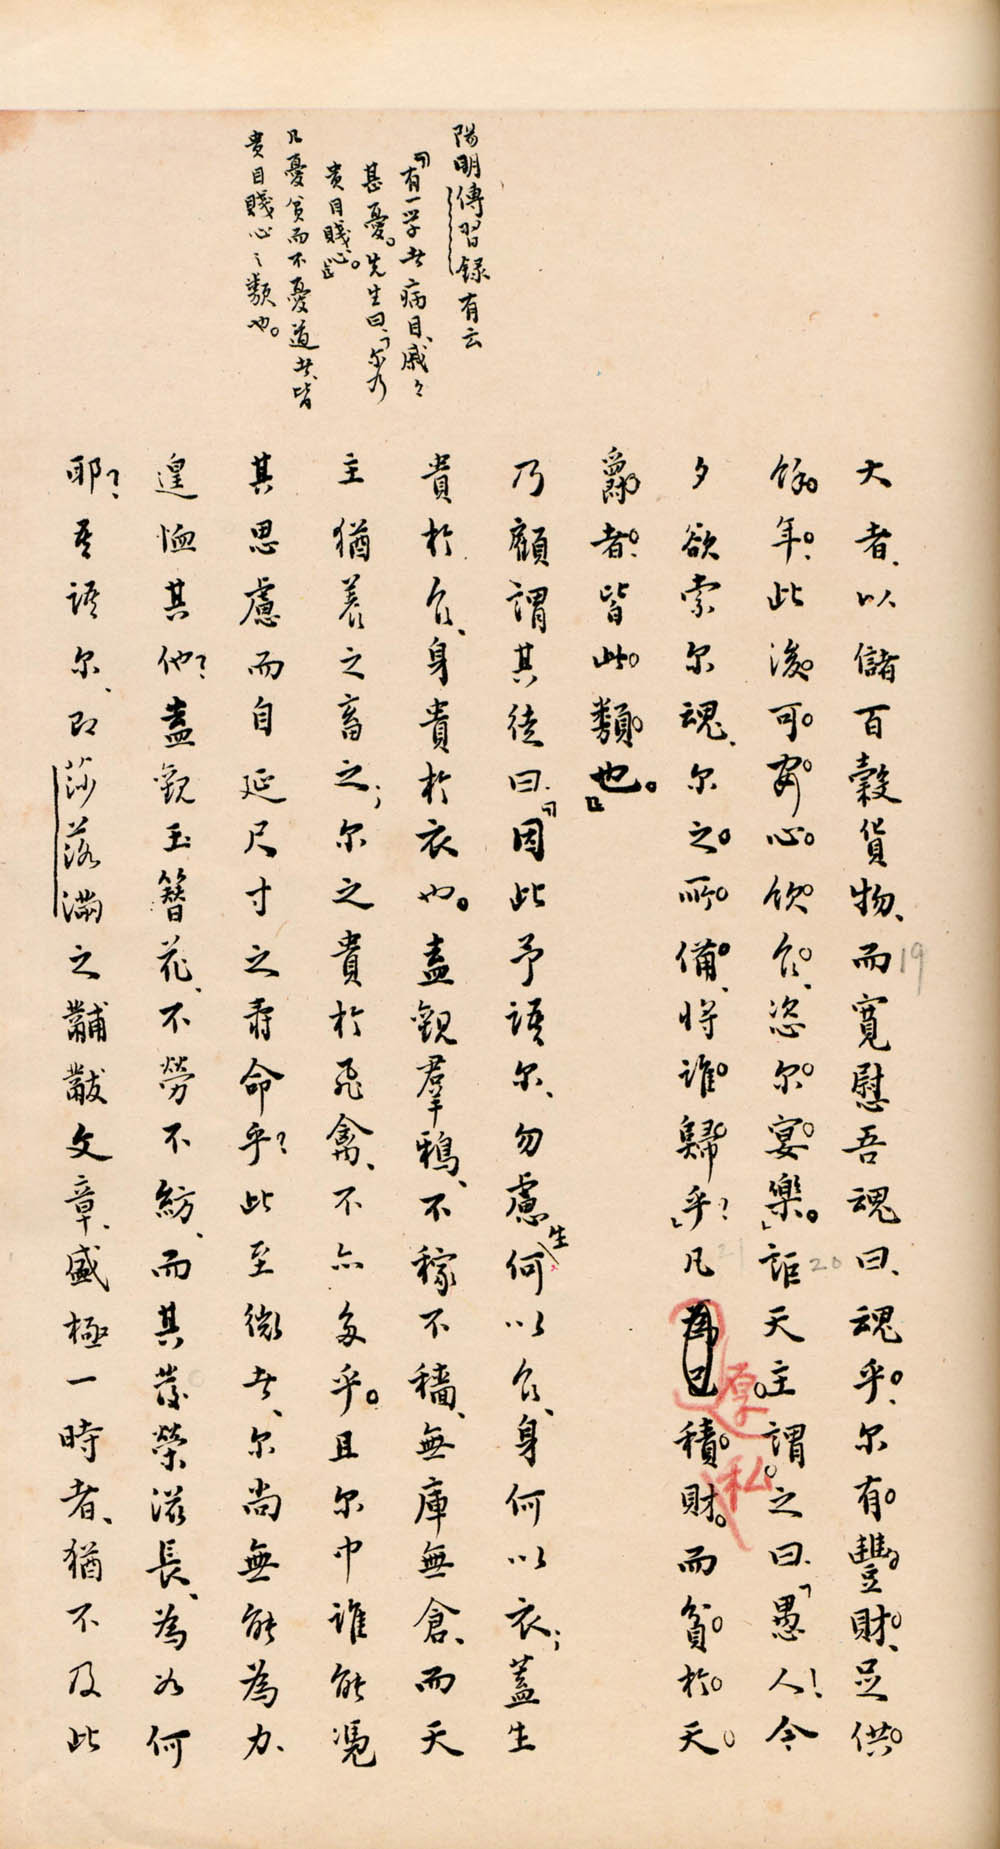 陽明傳習録有云
「有一学者病目、戚々
甚憂。先生曰、「尔乃
貴目賤心。」
凡憂貧而不憂道者、皆
貴目賤心之類也。
大者、以儲百穀貨物、而寬慰吾魂曰、魂乎。尔有豐財、足供
餘年。此後可安心飲食、恣尔宴樂。」詎天主謂之曰、「愚人！今
夕欲索尔魂、尔之所備、將誰歸乎？」凡為己積財。而貧於天
爵者。皆此類也。」
乃顧謂其徒曰、「因此予語尔、勿慮生何以食、身何以衣；蓋生
貴於食、身貴於衣也。盍觀羣鴉、不稼不穡、無庫無倉、而天
主猶養之畜之；尔之貴於飛禽、不亦多乎。且尔中誰能憑
其思慮而自延尺寸之壽命乎？此至微者、尔尚無能為力、
遑恤其他？盍觀玉簪花、不勞不紡、而其發榮滋長、為如何
耶？吾語尔、即莎落滿之黼黻文章、盛極一時者、猶不及此
原
私
19
20
21